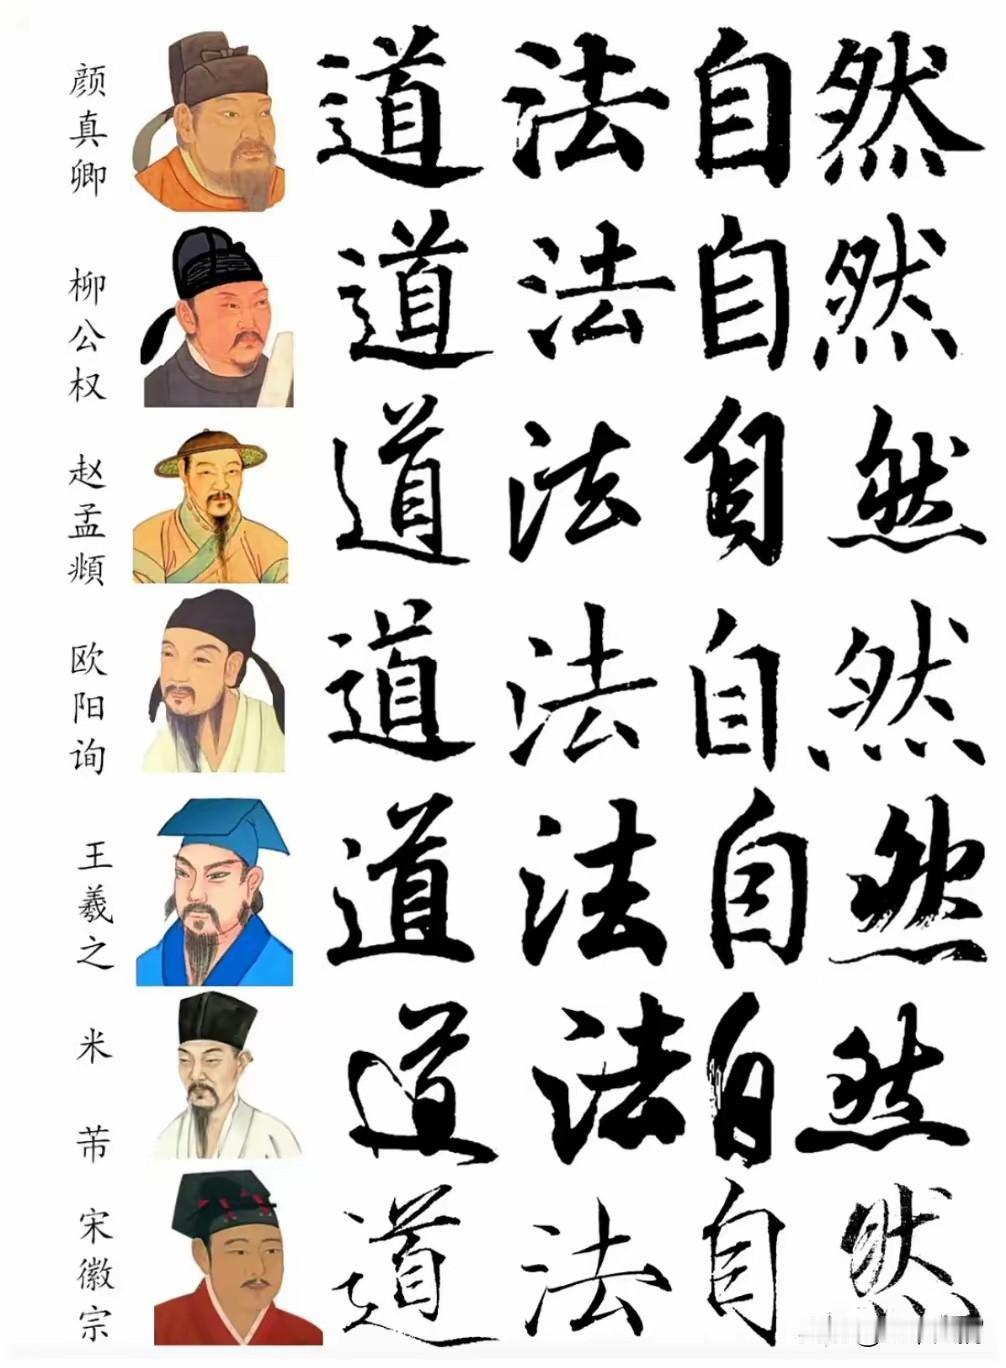 颜真卿 道法自然
柳公权 道法自然
赵孟頫 道法自然
欧阳询 道法自然
王羲之 道法自然
米芾 道法自然
宋徽宗 道法自然